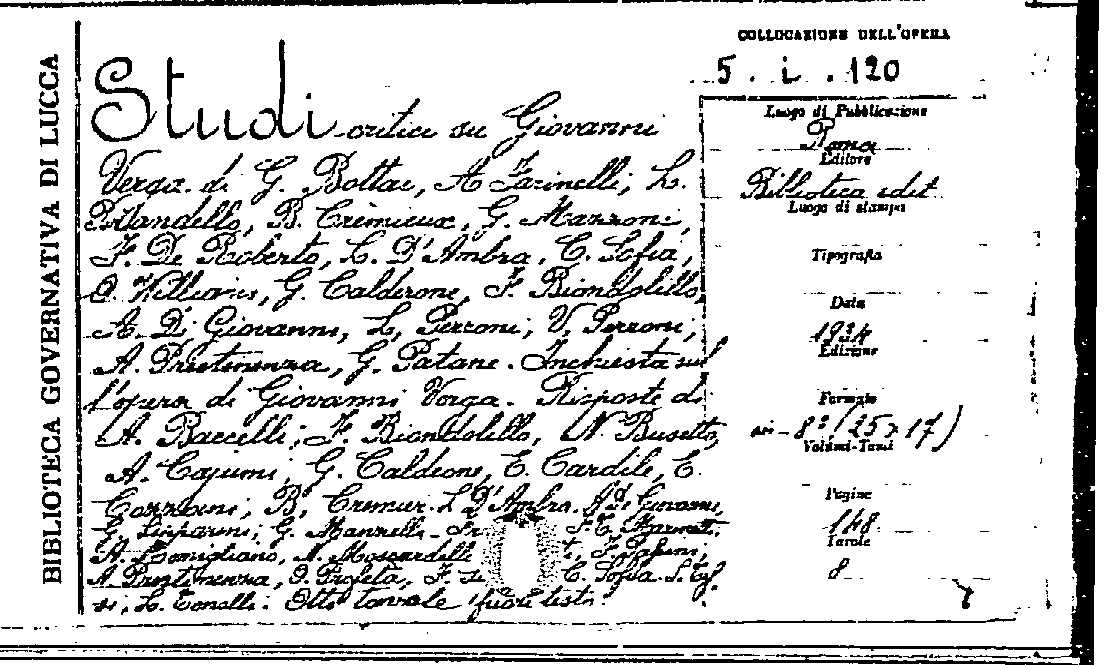 BIBLIOTECA GOVERNATIVA DI LUCCA
COLLOCAZIONE DELL'OPERA
5. i. 120
Studi critici su Giovanni
Verga di G. Bottai, A Farinelli, L.
Pirandello, B. Crèmieux, G. Mazzoni,
F. De Roberto, L. D'Ambra, C. Sofia,
O. Williams, G. Calderone, F. Biondolillo,
A. Di Giovanni, L. Perroni, V. Perroni,
A. Prestinenza, G. Patane. Inchiesta sul
l'opera di Giovanni Verga. Risposte di
A. Baccelli, F. Biondolillo, N. Busetto,
A. Cajumi, G. Caldeone, E. Cardile, E.
Cozzani, B. Cremur. L. D'Ambra. A. Di Giovanni,
G. Lipparini, G. F. T.
A. Momigliano, N. Moscardelli F. Papini,
A Prestinenza, O. Profeta, F. C. Sofia. S.
si, L. Tonelli. Otto tavole fuori testo.
Luogo di Pubblicazione
Roma
Editore
Bibliotica edit
Luogo di stampa
Tipografia
Data
1934
Edizione
Formato
in - 8° (25 x 17)
Volumi-Tomi
Pagine
148
Tavole
8